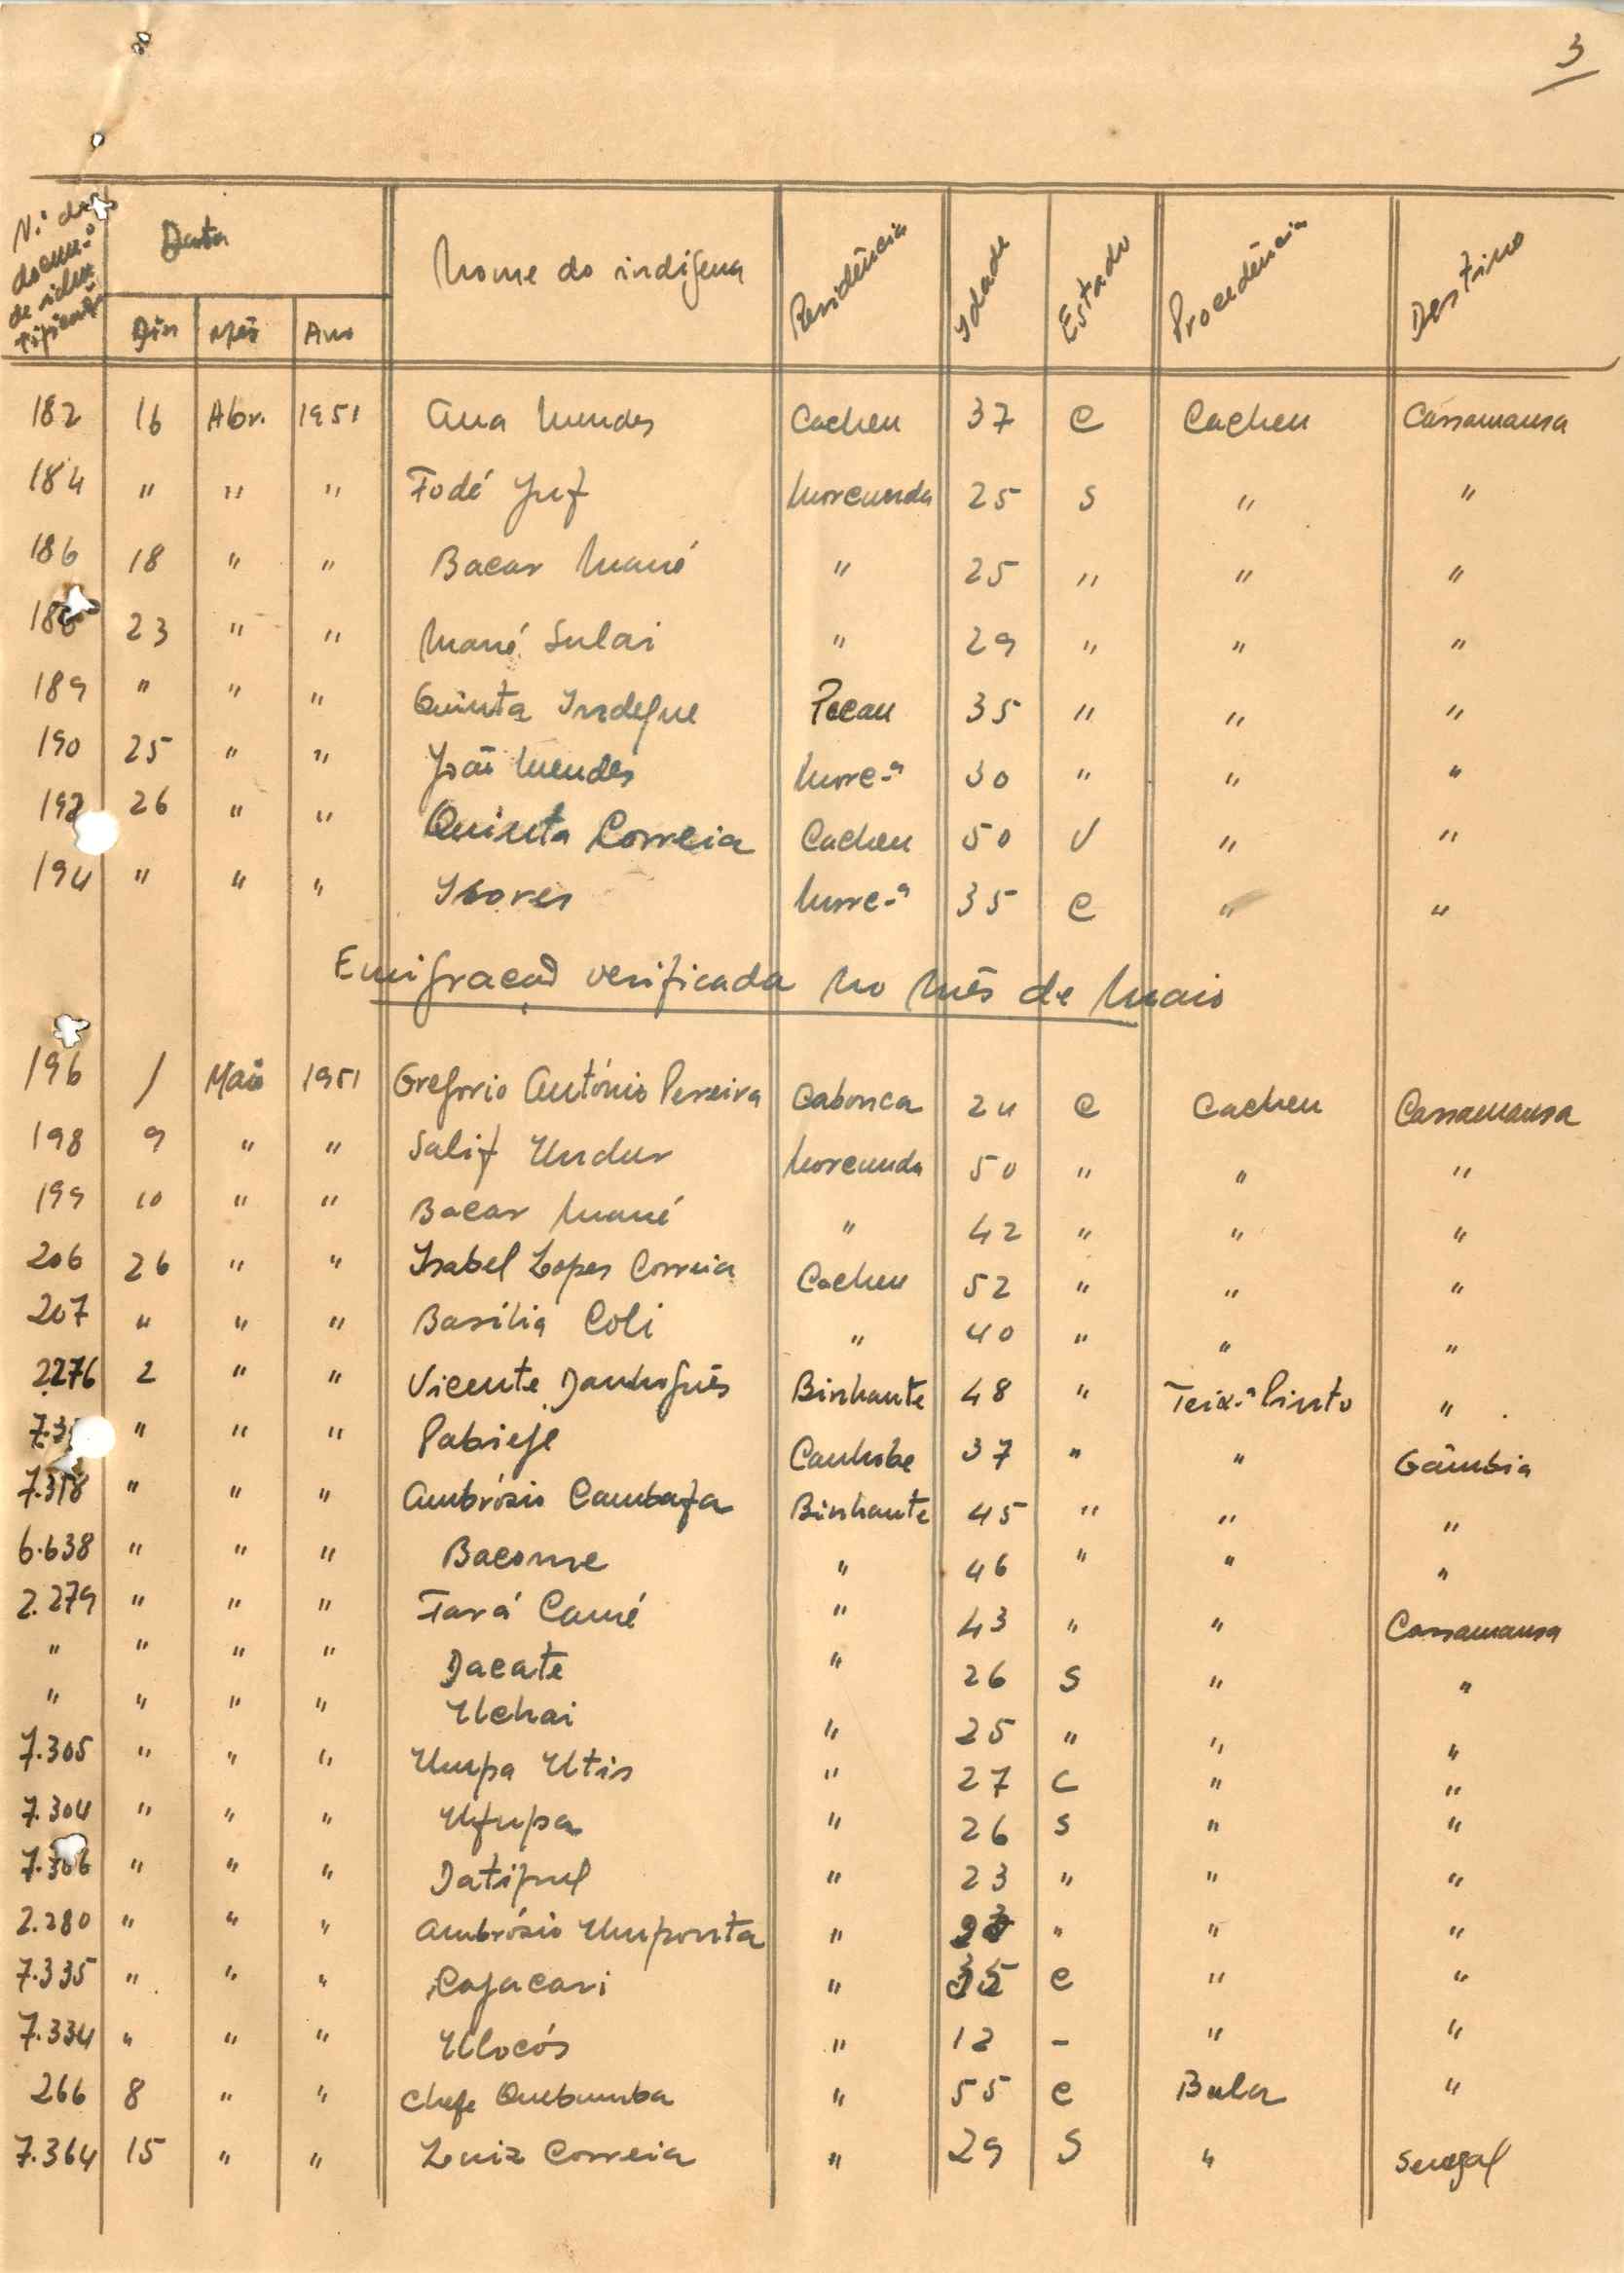 3
Nº do docum.º de iden tificação
Data
Dia Mês Ano
Nome do indígena
Residência
Idade
Estado
Procedência
Destino
182 16 Abr. 1951 Ana Mendes Cacheu 37 C Cacheu Cassamansa
184 " " " Fodé Juf Morcunda 25 S " "
186 18 " " Bacar Mané " 25 " " "
188 23 " " Mané Sulai " 29 " " "
189 " " " Quinta Indegue Pecau 35 " " "
190 25 " " João Mendes Morc-ª 30 " " "
192 26 " " Quinta Correia Cacheu 50 V " "
194 " " " Morc-ª 35 C " "
Emigração verificada no mês de Maio
196 1 Maio 1951 Gregorio António Pereira Cabonca 24 C Cacheu Cassamansa
198 9 " " Salif Undur Morcunda 50 " " "
199 10 " " Bacar Mané " 42 " " "
206 26 " " Isabel Lopes Correia Cacheu 52 " " "
207 " " " Basilia Coli " 40 " " "
2276 2 " " Vicente Binhante 48 " Teix.ª Pinto "
" " " Canhobe 37 " " Gâmbia
7.318 " " " Ambrósio Cambafa Binhante 45 " " "
6.638 " " " Bacome " 46 " " "
2.279 " " " Tará Camé " 43 " " Cassamansa
" " " " Dacate " 26 S " "
" " " " Uchai " 25 " " "
7.305 " " " Umpa Utis " 27 C " "
7.304 " " " Ufupa " 26 S " "
7.306 " " " Datipul " 23 " " "
2.280 " " " Ambrósio Umponta " " " "
7.335 " " " Cajacari " 35 C " "
7.334 " " " Ulocós " 12 - " "
266 8 " " Chefe Quebumba " 55 C Bula "
7.364 15 " " Luiz Correia " 29 S " Senegal